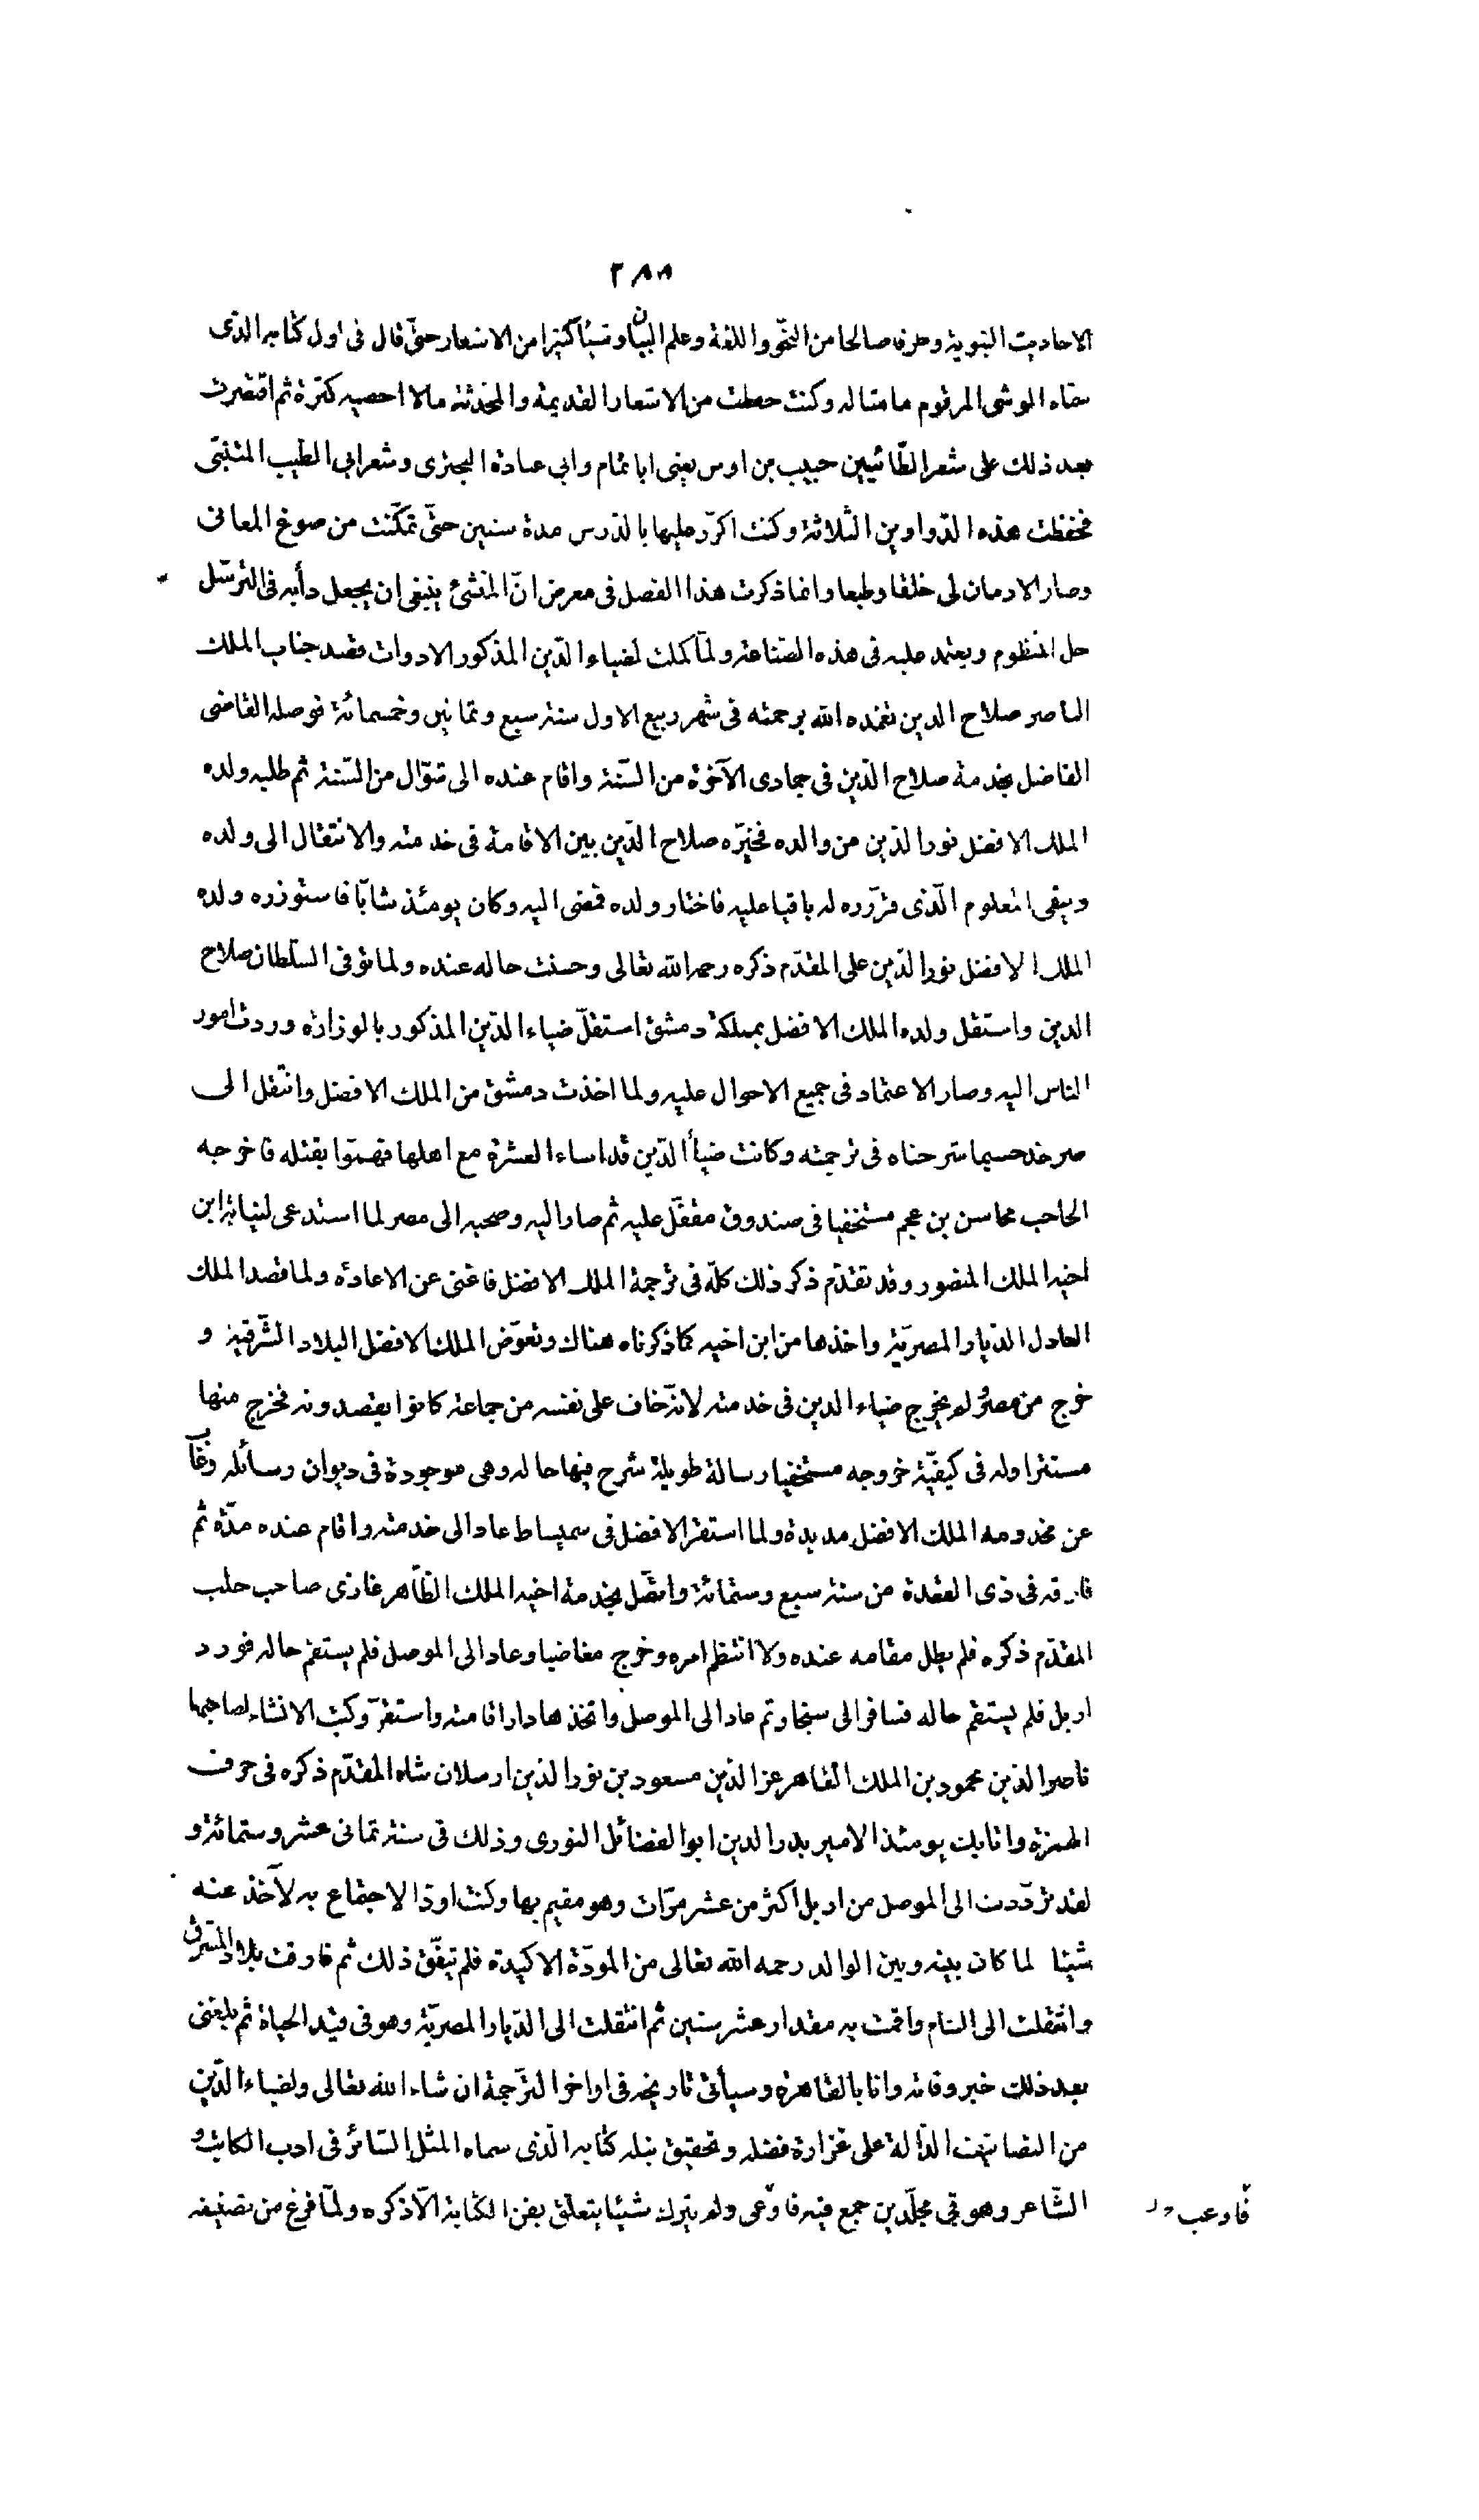 ٢٨٨
الاحاديث النبوية وطرفا صالحا من النحّو واللغة وعلم البيان وشيئا كثيرا من الاشعار حتىّ قال فى اول كتابه الذى
سماه الوشى المرقوم ما مثاله وكنت حفظت من الاشعار القديمة والمحدثة مالا احصيه كثرة ثم اقتصرت
بعد ذلك على شعر الطّائيين حبيب بن اوس يعنى ابا تمام وابي عبادة البحترى وشعر ابي الطيب المتنبّى
فحفظت هذه الدّواوين الثّلاثة وكنت اكرّر عليها بالدّرس مدة سنين حتىّ تمكّنت من صوغ المعانى
وصار الادمان لى خلقا وطبعا وانما ذكرت هذا الفصل فى معرض انّ المنشئ ينبغى ان يجعل دأبه فى الترسّل
حل المنظوم ويعتمد عليه فى هذه الصّناعة ولمّا كملت لضياء الدّين المذكور الادوات قصد جناب الملك
الناصر صلاح الدين تغمّده الله برحمته فى شهر ربيع الاول سنة سبع وثمانين وخمسمائة فوصله القاضى
الفاضل بخدمة صلاح الدّين فى جمادى الآخرة من السّنة واقام عنده الى شوّال من السّنة ثم طلبه ولده
الملك الافضل نور الدّين من والده فخيّره صلاح الدّين بين الاقامة فى خدمته والانتقال الى ولده
ويبقى المعلوم الّذى قرّره له باقيا عليه فاختار ولده فمضى اليه وكان يومئذ شابّا فاستوزره ولده
الملك الافضل نور الدّين على المقدّم ذكره رحمه الله تعالى وحسنت حاله عنده ولما توفى السّلطان صلاح
الدين واستقل ولده الملك الافضل بمملكة دمشق استقلّ ضياء الدّين المذكور بالوزارة وردت امور
الناس اليه وصار الاعتماد فى جميع الاحوال عليه ولما اخذت دمشق من الملك الافضل وانتقل الى
صرخد حسبما شرحناه فى ترجمته وكانت ضيأ الدّين قد اساء العشرة مع اهلها فهمّوا بقتله فاخرجه
الحاجب محاسن بن عجم مستخفيا فى صندوق مقفّل عليه ثم صار اليه وصحبه الى مصر لما استدعى لنيابة ابن
اخيه الملك المنصور وقد تقدّم ذكر ذلك كلّه فى ترجمة الملك الافضل فاغنى عن الاعادة ولما قصد الملك
العادل الديار المصريّة واخذها من ابن اخيه كما ذكرناه هناك وتعوّض الملك الافضل البلاد الشّرقية و
خرج من مصر ولم يخرج ضياء الدين فى خدمته لانّه خاف على نفسه من جماعة كانوا يقصدونه فخرج منها
مستترا وله فى كيفيّة خروجه مستخفيا رسالة طويلة شرح فيها حاله وهى موجودة فى ديوان رسائله وغاب
عن مخدومه الملك الافضل مديدة ولما استقر الافضل فى سميساط عاد الى خدمته واقام عنده مدّة ثم
فارقه فى ذى العقدة من سنة سبع وستمائة واتصّل بخدمة اخيه الملك الظّاهر غازى صاحب حلب
المقدّم ذكره فلم يطل مقامه عنده ولا انتظم امره وخرج مغاضبا وعاد الى الموصل فلم يستقم حاله فورد
اربل فلم يستقم حاله فسافر الى سنجار ثم عاد الى الموصل واتخذها دار اقامته واستقرّ وكتب الانشاء لصاحبها
ناصر الدّين محمود بن الملك القاهر عز الدّين مسعود بن نور الدّين ارسلان شاه المقدّم ذكره فى حرف
الهمزة واتابك يومئذ الامير بدر الدين ابو الفضائل النورى وذلك فى سنة ثمانى عشر وستمائة و
لقد تردّدت الى الموصل من اربل اكثر من عشر مرّات وهو مقيم بها وكنت اودّ الاجتماع به لآخذ عنه
شيئا لما كان بينه وبين الوالد رحمه الله تعالى من المودّة الاكيدة فلم يتفّق ذلك ثم فارقت بلاد المشرق
وانتقلت الى الشام واقمت به مقدار عشر سنين ثم انتقلت الى الدّيار المصريّة وهو فى قيد الحياة ثم بلغنى
بعد ذلك خبر وفاته وانا بالقاهرة وسيأتى تاريخه فى اواخر الترّجمة ان شاء الله تعالى ولضياء الدّين
من التصانيف الدّالة على غزارة فضله وتحقيق نبله كتابه الّذى سماه المثل السّائر فى ادب الكاتب و
الشّاعر وهو فى مجلّدين جمع فيه فاوّعى ولم يترك شيئا يتعلّق بفن الكتابة الّا ذكره ولمّا فرغ من تصنيفه
فاوعب